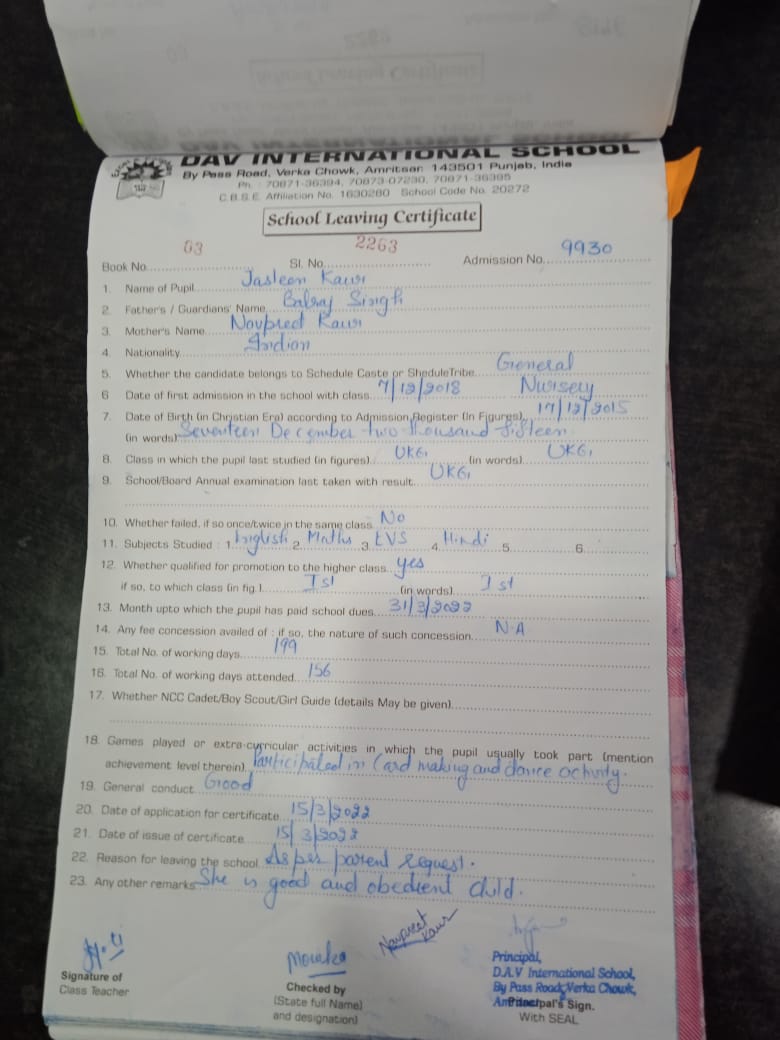 DAV INTERNATIONAL SCHOOL
By Pass Road, Verka Chowk, Amritsar 143501 Punjab, India
Ph. : 70871-36394, 70873-07230, 70871-36395
C.B.S.E. Affiliation No. 1630260 School Code No. 20272
School Leaving Certificate
Book No. 03 Sl. No. 2263 Admission No. 9930
1. Name of Pupil Jasleen Kaur
2. Father's / Guardians' Name Balraj Singh
3. Mother's Name Navpreet Kaur
4. Nationality Indian
5. Whether the candidate belongs to Schedule Caste or SheduleTribe General
6 Date of first admission in the school with class 7/12/2018 Nursery
7. Date of Birth (in Christian Era) according to Admission Register (In Figures) 17/12/2015
(in words) Seventeen December two thousand fifteen
8. Class in which the pupil last studied (in figures) UKG (in words) UKG
9. School/Board Annual examination last taken with result UKG
10. Whether failed, if so once/twice in the same class No
11. Subjects Studied : 1. English 2. Maths 3. EVS 4. Hindi 5. 6.
12. Whether qualified for promotion to the higher class yes
if so, to which class (in fig.) Ist (in words) Ist
13. Month upto which the pupil has paid school dues 31/3/2022
14. Any fee concession availed of : if so, the nature of such concession N.A
15. Total No. of working days 199
16. Total No. of working days attended 156
17. Whether NCC Cadet/Boy Scout/Girl Guide (details May be given)
18. Games played or extra-curricular activities in which the pupil usually took part (mention
achievement level therein) Participated in Card making and dance activity.
19. General conduct Good
20. Date of application for certificate 15/3/2022
21. Date of issue of certificate 15/3/2022
22. Reason for leaving the school As per parent request.
23. Any other remarks She is good and obedient child.
Navpreet
Kaur
Signature of
Class Teacher
Checked by
(State full Name)
and designation)
Principal,
D.A.V International School,
By Pass Road, Verka Chowk,
Principal's Sign.
With SEAL